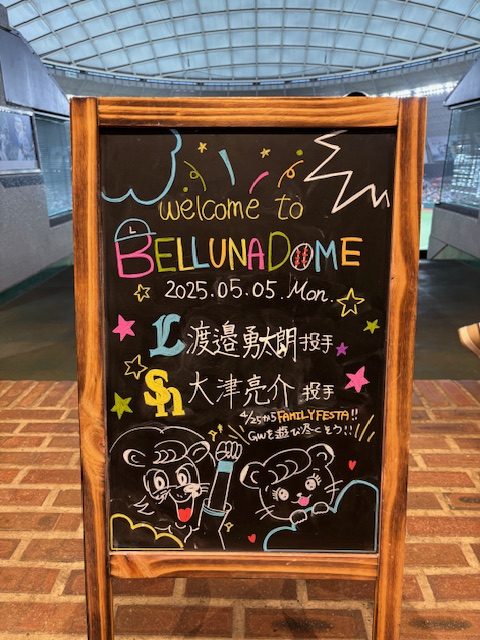 welcome to
BELLUNADOME
2025.05.05. Mon.
L 渡邉勇太朗 投手
SH 大津亮介 投手
4/25から FAMILY FESTA!!
GWを遊び尽くそう!!